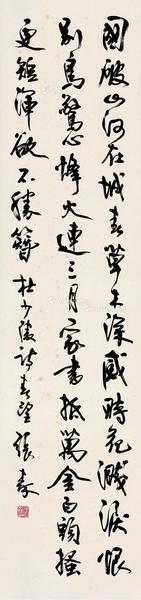 國破山河在城春草木深感時花濺淚恨
別鳥驚心烽火連三月家書抵萬金白頭搔
更短渾欲不勝簪 杜少陵詩春望 張森